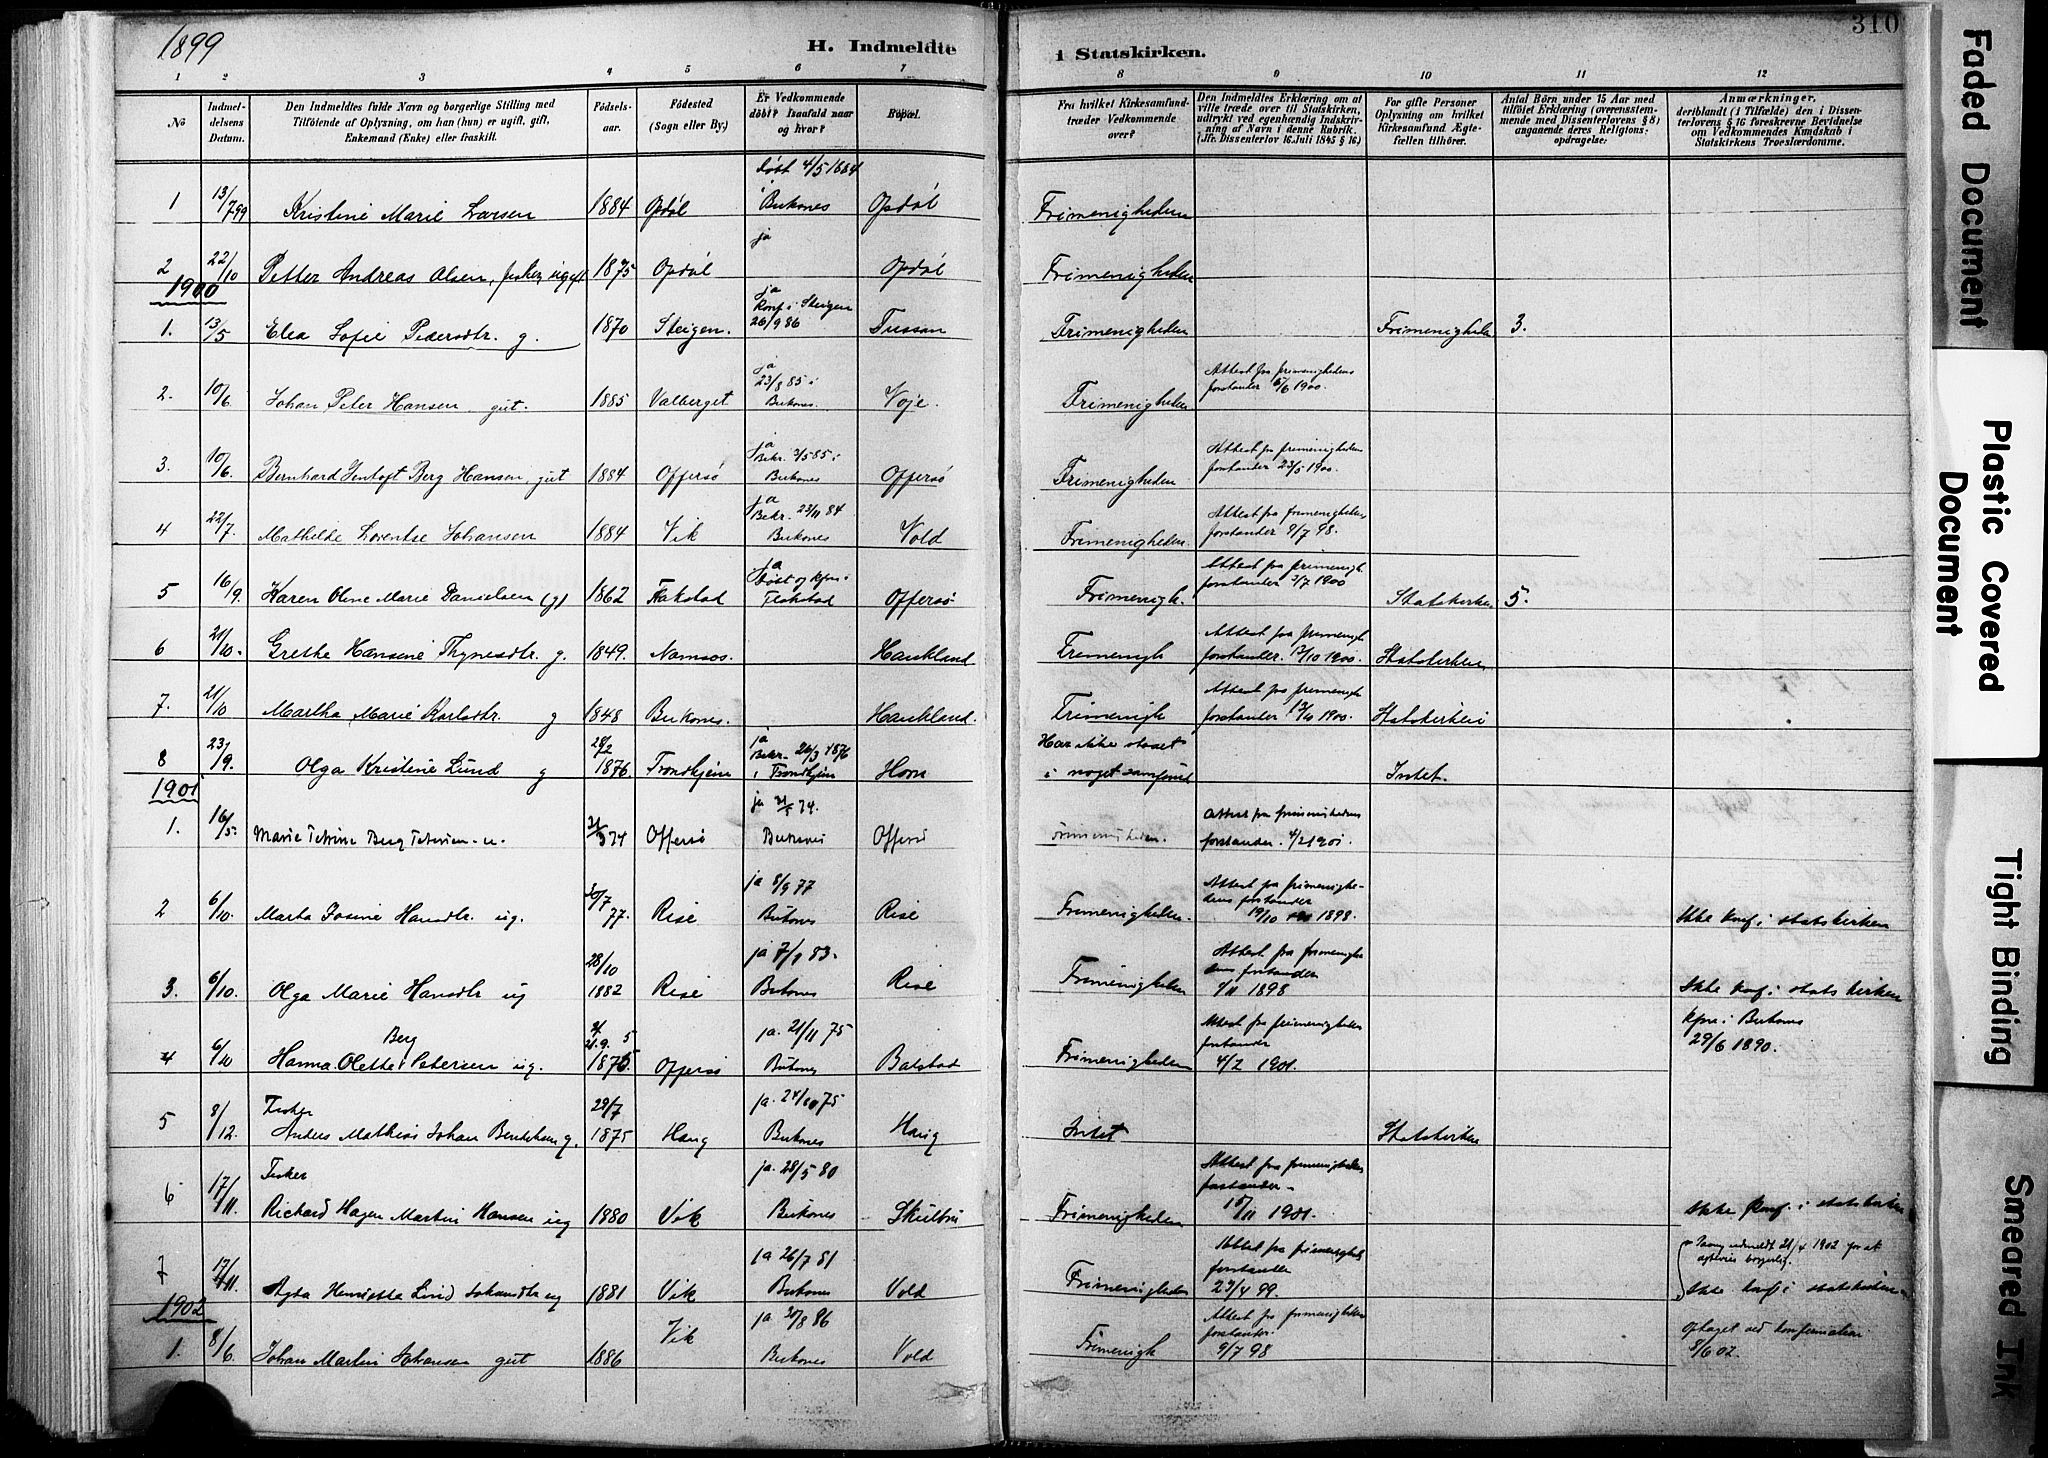 1899
H. Indmeldte i Statskirken.
310
1 2 3 4 5 6 7 8 9 10 11 12
No
Indmeldelsens Datum.
Den Indmeldtes fulde Navn og borgerlige Stilling med Tilføiende af Oplysning, om han (hun) er ugift, gift, Enkemand (Enke) eller fraskilt.
Fødselsaar.
Fødested (Sogn eller By.)
Er Vedkommende døbt? Isaafald naar og hvor?
Bopæl.
Fra hvilket Kirkesamfund træder Vedkommende over?
Den Indmeldtes Erklæring om at ville træde over til Statskirken, udtrykt ved egenhændig Indskrivning af Navn i denne Rubrik. (Jfr. Dissenterlov 16 Juli 1845 § 16)
For gifte Personer Oplysning om hvilket Kirkesamfund Ægtefællen tilhører.
Antal Børn under 15 Aar med tilføiet Erklæring (overensstemmende med Dissenterlovens § 8) angaaende deres Religionsopdragelse:
Anmærkninger, deriblandt (i Tilfælde) den i Dissenterlovens § 16 foreskrevne Bevidnelse om Vedkommendes Kundskab i Statskirkens Troeslærdomme.
1 13/7 99 Kristine Marie Larsen 1884 Opdøl døbt 4/5 1884 i Buksnes Opdøl Frimenigheden
2 22/10 Petter Andreas Olsen, fisker, ugift 1875 Opdøl ja Opdøl Frimenigheden
1900
1. 13/5 Elea Sofie Pedersdtr. g. 1870 Steigen. ja Konf. i Steigen 26/9 86 Tussan Frimenigheden Frimenigheden 3.
2. 10/6. Johan Peter Hansen gut. 1885 Valberget ja 23/8 85 i Buksnes. Voje. Frimenigheden Attest fra frimenighedens forstander 6/6 1900.
3. 10/6. Bernhard Jentoft Berg Hansen, gut 1884 Offersø ja Bekr. 3/5 85 i Buksnes Offersø Frimenigheden Attest fra frimenighedens forstander 23/5 1900.
4 22/7. Mathilde Lorentse Johansen 1884 Vik ja Bekr. 23/11 84 Buksnes Vold Frimenigheden. Attest fra frimenighedens forstander 9/7 98.
5 16/9. Karen Oline Marie Danielsen (g) 1862 Flakstad ja Døbt og kfm. i Flakstad Offersø Frimenigh. Attest fra frimenigh. forstander 3/7 1900 Statskirken 5.
6 21/10. Grethe Hansine Thynesdtr. g. 1849. Namsos. Haukland Frimenigh Attest fra frimenigh forstander. 13/10 1900. Statskirken
7. 21/10 Martha Marie Karlsdtr. g 1848 Buksnes. Haukland. Frimenigh Attest fra frimenigh forstander 1900. Statskirken
8 23/9. Olga Kristine Lund g 28/2 1876. Trondhjem ja Bekr. 26/3 1876 i Trondhjem Horn Har ikke staaet i noget samfund Intet.
1901
1. 16/5. Marie Petrine Berg Petersen. u. 74 Offersø ja 74. Buksnes Offersø Frimenigheden. Attest fra frimenighedens forstander. 4/2 1901.
2 6/10. Marta Josine Hansdtr. ug. 30/7 77. Rise ja 8/9 77 Buksnes Rise Frimenigheden. Attest fra frimenighedens forstander 19/10 1898. Ikke konf. i statskirken
3. 6/10. Olga Marie Hansdtr ug 28/10 1882 Rise ja 7/1 83. Buksnes Rise Frimenigheden Attest fra frimenighedens forstander 1/11 1898 Ikke konf. i statskirken
4 6/10 Hanna Olette Berg Petersen ug. 21.9. 1875 Offersø ja. 21/11 75 Buksnes Balstad Frimenigheden Attest fra frimenigheden forstander 4/2 1901. kfm. i Buksnes 29/6 1890.
5 8/12. Fisker Anders Mathias Johan Bentzen g. 29/7 1875 Haug ja. 24/10 75 Buksnes Haug Intet Statskirken
6 17/11. Fisker Richard Hagen Martin Hansen ug 1880 Vik ja. 28/5 80 Buksnes Skulbru Frimenigheden Attest fra frimenighedens forstander. 15/11 1901. Ikke konf. i statskirken
7 17/11. Agda Henriette Lind Johansdtr ug 1881 Vik ja 26/7 81 Buksnes Vold Frimenigheden Attest fra frimenigheds forstander 23/4 99. udmeldt 21/4 1902 for at borgerlig. Ikke konf. i statskirken
1902
1. 8/6. Johan Martin Johansen gut 1886 Vik ja 30/8 86 Buksnes Vold Frimenigh Attest fra frimenigheden forstander. 9/7 98 Optaget ved konfirmation 8/6 02.
Faded Document
Plastic Covered Document
Tight Binding
Smeared Ink